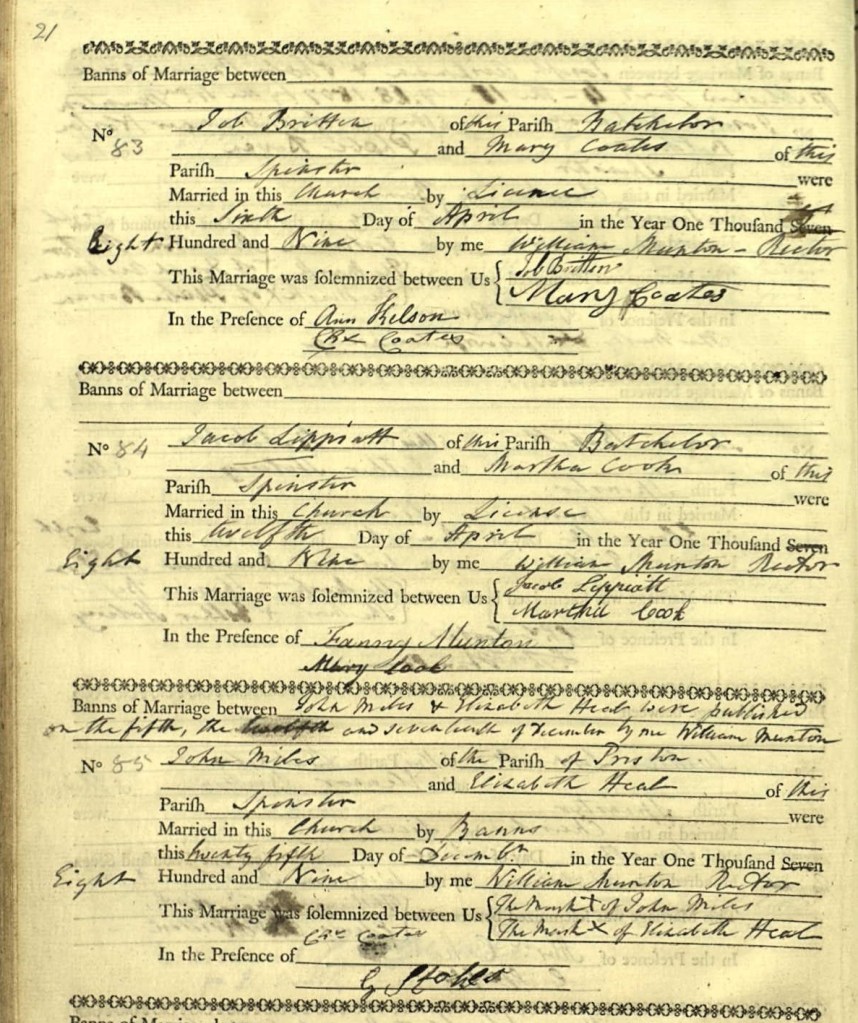 21
Banns of Marriage between
Nº 83 Job Britten of this Pariſh Batchelor
and Mary Coates of this
Pariſh Spinster were
Married in this Church by Licence
this Sixth Day of April in the Year One Thouſand Seven
Eight Hundred and Nine by me William Munton - Rector
This Marriage was ſolemnized between Us { Job Britten
Mary Coates
In the Preſence of Ann Kelson
Coates
Banns of Marriage between
Nº 84 Jacob Lippiatt of this Pariſh Batchelor
and Martha Cook of this
Pariſh Spinster were
Married in this Church by License
this twelfth Day of April in the Year One Thouſand Seven
Eight Hundred and Nine by me William Munton Rector
This Marriage was ſolemnized between Us { Jacob Lippiatt
Martha Cook
In the Preſence of Fanny Munton
Mary Cook
Banns of Marriage between John Miles & Elizabeth Heal were published
on the fifth, the twelfth and seventeenth of December by me William Munton
Nº 85 John Miles of the Pariſh of Priston
and Elizabeth Heal of this
Pariſh Spinster were
Married in this Church by Banns
this twenty fifth Day of Decembr in the Year One Thouſand Seven
Eight Hundred and Nine by me William Munton Rector
This Marriage was ſolemnized between Us { The Mark X of John Miles
The Mark X of Elizabeth Heal
Coates
In the Preſence of
G Stokes
Banns of Marriage between